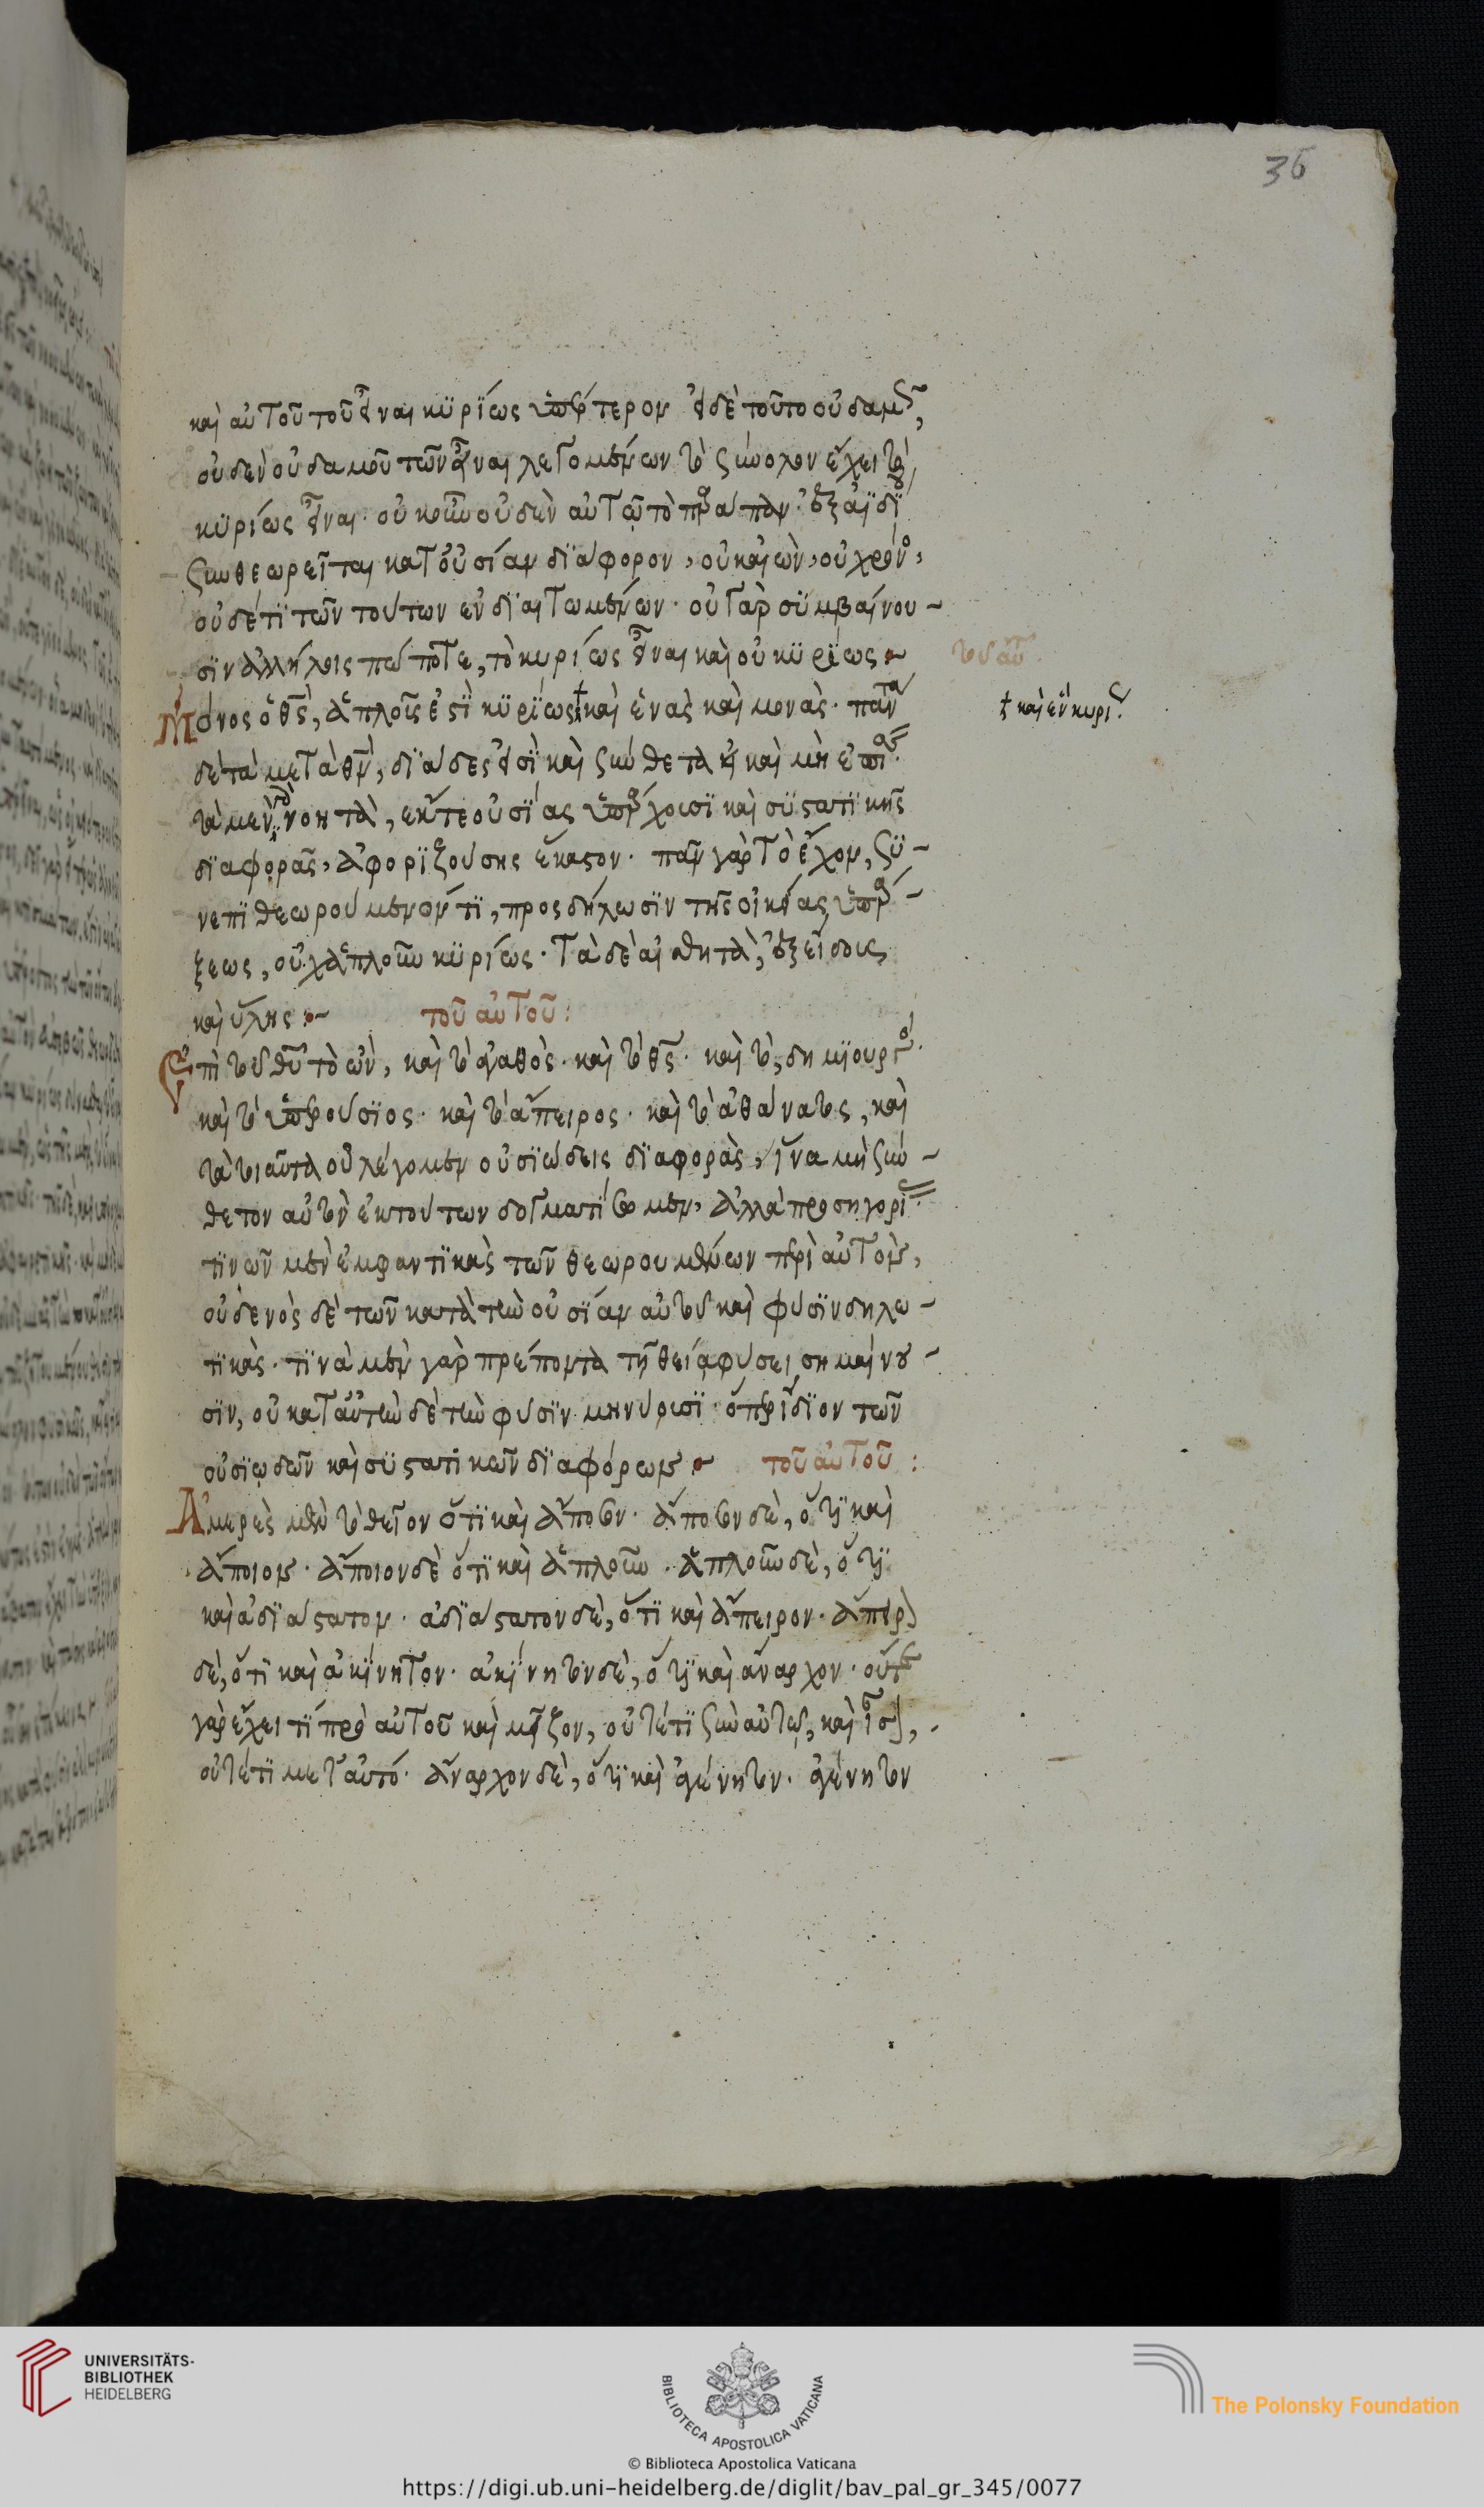 36
καὶ αὐτοῦ τοῦ εἶναι κϋρΐως ὑπέρτερον· εἰ δὲ τοῦτο οὐδαμῶς,
οὐδὲν οὐδαμοῦ τῶν εἶναι λεγομένων τὸ σύνολον ἔχει τὸ
κϋρίως εἶναι· οὐκοῦν οὐδὲν αὐτῷ τὸ παράπαν ἐξ ἀϊδίου
συνθεωρεῖται κατ' οὐσίαν δϊάφορον, οὐκ αἰὼν, οὐ χρόνος,
οὐδέ τϊ τῶν τούτων ἐνδϊαιτωμένων· οὐ γὰρ σϋμβαίνου-
σϊν ἀλλήλοις πώποτε, τὸ κυρίως εἶναι καὶ οὐ κϋρΐως
τοῦ αὐτοῦ
Μόνος ὁ θς, ἁπλοῦς ἐστϊ κϋρΐως καὶ ἑνὰς καὶ μονάς· πάντα
† καὶ ἓν κυρίως
δὲ τὰ μετὰ θν, δϊάδες εἰσὶ καὶ σύνθετα
τὰ μὲν νοητὰ, ἔκ τε οὐσΐας ὑπάρχουσϊ καὶ σϋστατϊκῆς
δϊαφορᾶς, ἀφορϊζούσης ἕκαστον· πᾶν γὰρ τὸ ἔχον, σϋ-
νεπϊθεωρούμενόν τϊ, προς δήλωσϊν τῆς οἰκείας ὑπάρ-
ξεως, οὐχ ἁπλοῦν κϋρίως· τὰ δὲ αἰσθητὰ, ἐξ εἴδους
καὶ ὕλης:~ τοῦ αὐτοῦ:
Ἐπὶ τοῦ θυ τὸ ὢν, καὶ τὸ ἀγαθὸς· καὶ τὸ θς· καὶ τὸ, δημϊουργός·
καὶ τὸ ὑπερούσϊος· καὶ τὸ ἄπειρος· καὶ τὸ ἀθάνατος, καὶ
τὰ τοιαῦτα οὐ λέγομεν οὐσϊώδεις δϊαφορὰς, ἵνα μὴ σύν-
θετον αὐτὸν ἐκ τούτων δογματίσωμεν, ἀλλὰ προσηγορίας
τϊνῶν μὲν ἐμφαντϊκὰς τῶν θεωρουμένων περὶ αὐτὸν,
οὐδενὸς δὲ τῶν κατὰ τὴν οὐσϊαν αὐτοῦ καὶ φύσϊν δηλω-
τϊκὰς· τϊνὰ μὲν γὰρ πρέποντα τῇ θείᾳ φύσει σημαίνου-
σϊν, οὐ κατ' αὐτὴν δὲ τὴν φύσϊν μηνύουσϊ· ὅπερ ἴδϊον τῶν
οὐσϊωδῶν καὶ σϋστατικῶν δϊαφόρων:~ τοῦ αὐτοῦ:
Ἀμερὲς μὲν τὸ θεῖον ὅτϊ καὶ ἄποσον· ἄποσον δὲ, ὅτϊ καὶ
ἄποιον· ἄποιον δὲ ὅτϊ καὶ ἁπλοῦν· ἁπλοῦν δὲ, ὅτϊ
καὶ ἀδϊάστατον· ἀδϊάστατον δὲ, ὅτϊ καὶ ἄπειρον· ἄπειρον
δὲ, ὅτϊ καὶ ἀκίνητον· ἀκίνητον δὲ, ὅτϊ καὶ ἄναρχον· οὔτε
γὰρ ἔχει τϊ πρὸ αὐτοῦ καὶ μεῖζον, οὔτέ τϊ σὺν αὐτῷ, καὶ ἴσον,
οὔτέ τϊ μετ' αὐτό· ἄναρχον δὲ, ὅτϊ καὶ ἀγένητον· ἀγένητον
UNIVERSITÄTS-
BIBLIOTHEK
HEIDELBERG
BIBLIOTECA APOSTOLICA VATICANA
The Polonsky Foundation
© Biblioteca Apostolica Vaticana
https://digi.ub.uni-heidelberg.de/diglit/bav_pal_gr_345/0077